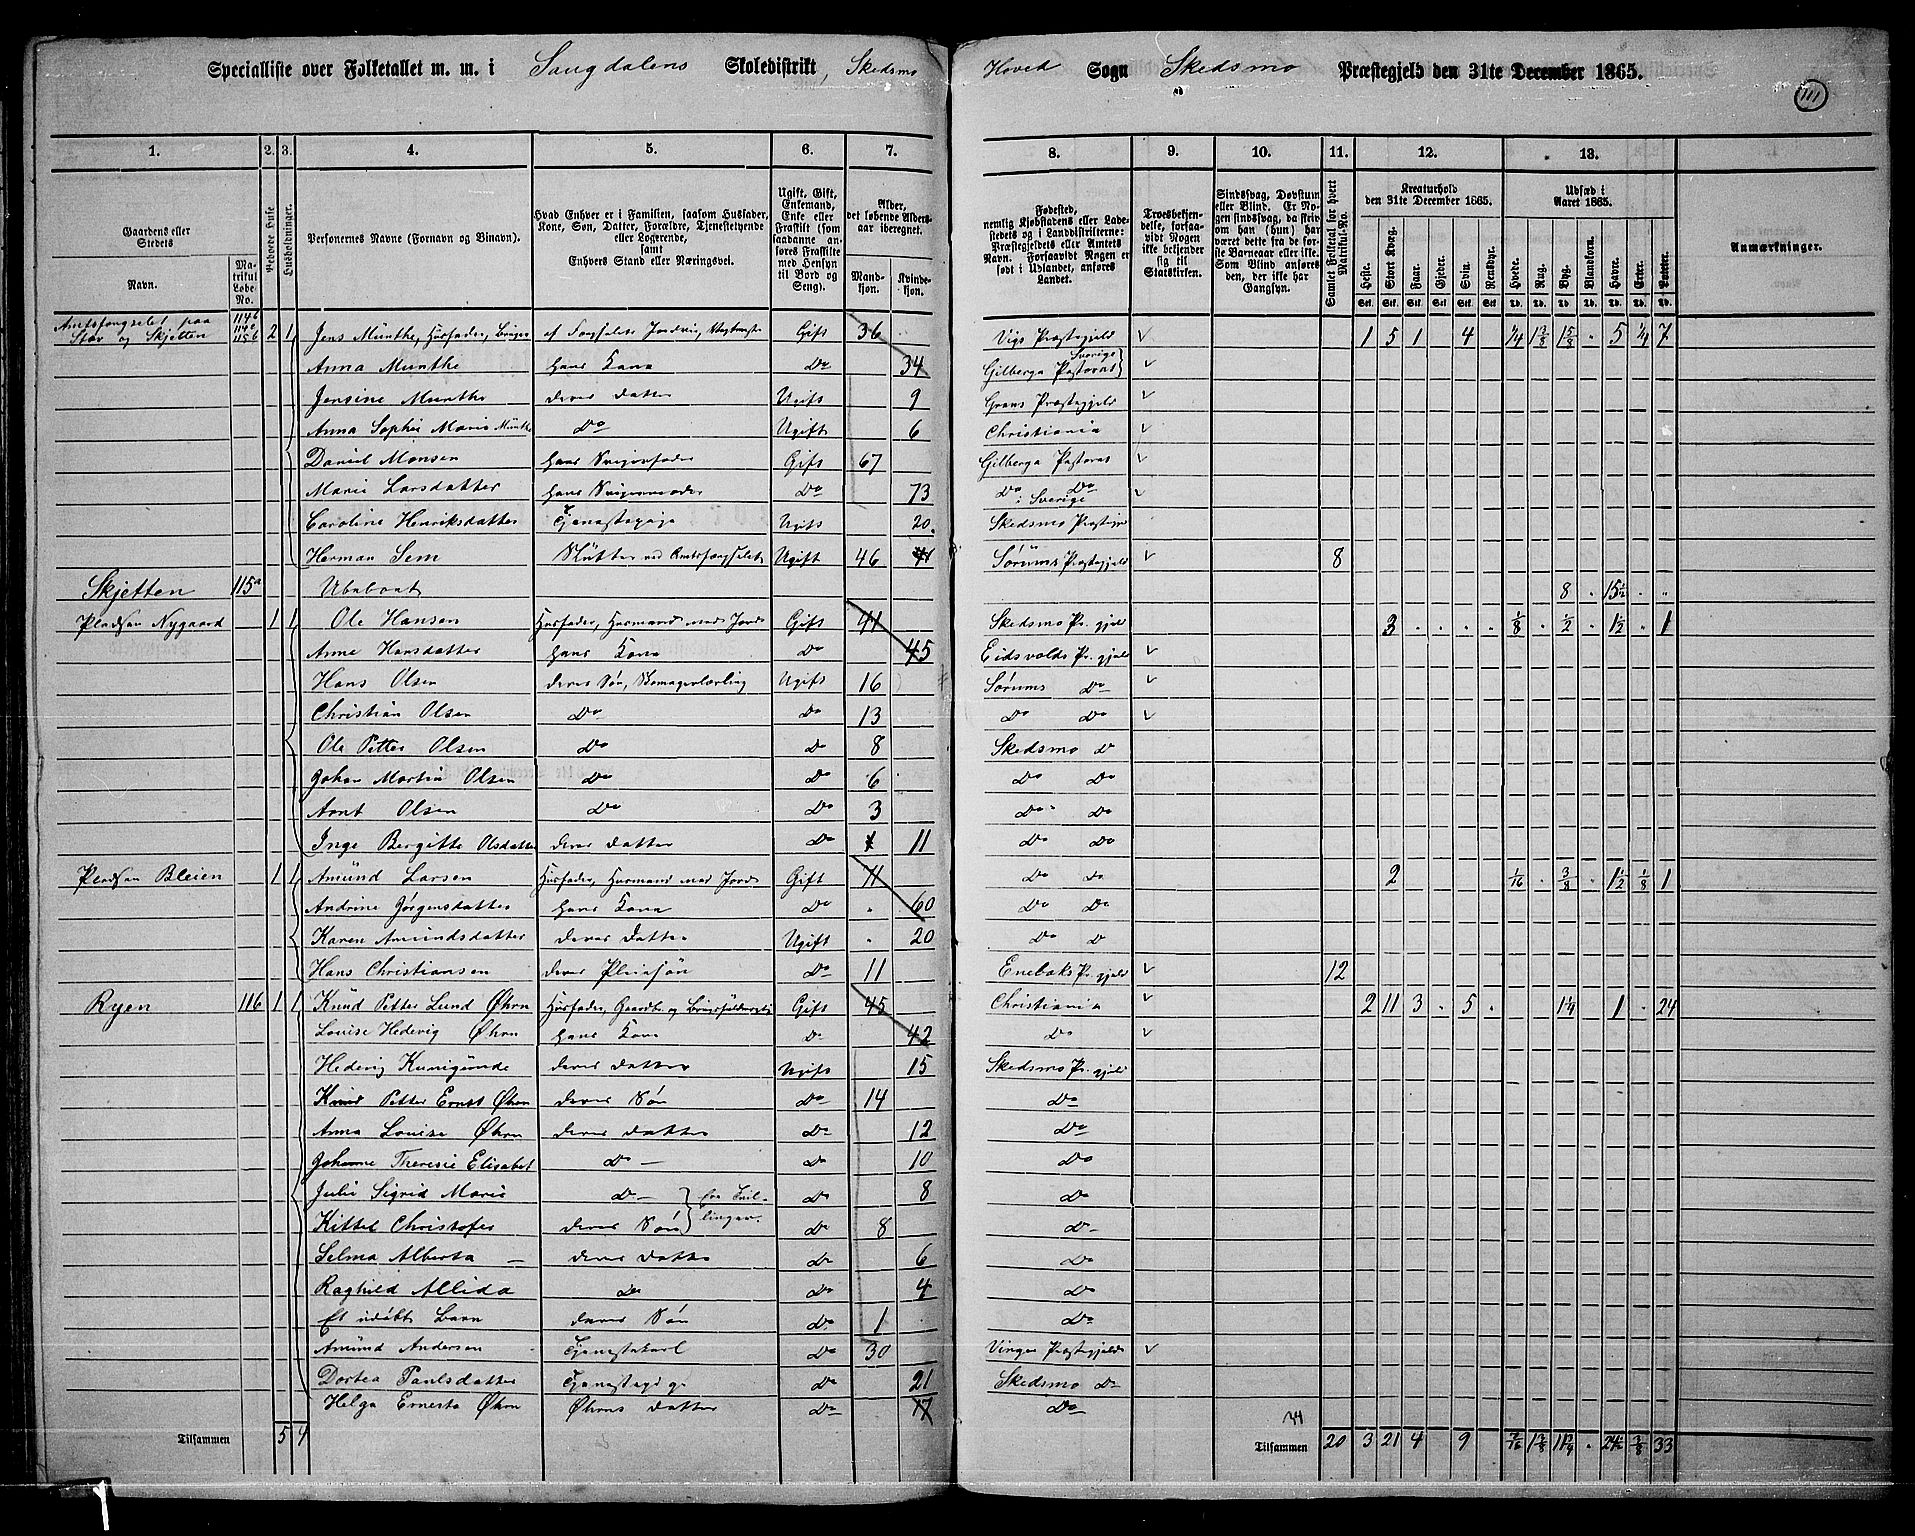 Specialliste over Folketallet m. m. i Saugdalens Skoledistrikt, Skedsmo Hoved Sogn Skedsmo Præstegjeld den 31te December 1865.
111
1. 2. 3. 4. 5. 6. 7. 8. 9. 10. 11. 12. 13.
Gaardens eller Stedets Navn. Matrikul Løbe-No. Beboede Huse Husholdninger. Personernes Navne (Fornavn og Binavn). Hvad Enhver er i Familien, saasom Husfader, Kone, Søn, Datter, Forældre, Tjenestetyende eller Logerende, samt Enhvers Stand eller Næringsvei. Ugift, Gift, Enkemand, Enke eller Fraskilt (som saadanne anføres Fraskilte med Hensyn til Bord og Seng). Alder, det løbende Alders-aar iberegnet. Mandkjøn. Kvindekjøn. Fødested, nemlig Kjøbstadens eller Ladestedets og i Landdistrikterne: Præstegjeldets eller Amtets Navn. Forsaavidt Nogen er født i Udlandet, anføres Landet. Troesbekjendelse, forsaavidt Nogen ikke bekjender sig til Statskirken. Sindssvag, Døvstum eller Blind. Er Nogen sindssvag, da skrives om han (hun) har været dette fra de første Barneaar eller ikke. Som Blind anføres den, der ikke har Gangsyn. Samlet Folketal for hvert Matrikul-No. Kreaturhold den 31te December 1865. Heste. Stort Kvæg. Faar. Gjeder. Svin. Rensdyr. Udsæd i Aaret 1865. Hvede. Rug. Byg. Blandkorn. Havre. Erter. Poteter. Anmærkninger.
Amtsfængselet paa 114b
Stav og Skjetten 115b 2 1 Jens Munthe, Husfader, Gift 36 Præstegjeld 1 5 1 4 1/4 1 3/8 1 5/8 5 1/4 7
Anna Munthe hans Kone Do 34 Gilberga Pastorat Sverige
Jensine Munthe deres Datter Ugift 9 Grans Præstegjeld
Anna Sophie Marie Munthe Do Ugift 6 Christiania
Daniel Monsen hans Svigerfader Gift 67 Gilberga Pastorat
Marie Larsdatter hans Svigermoder Do 73 Do Do i Sverige
Caroline Henriksdatter Tjenestepige Ugift 20 Skedsmo Præstegjeld
Herman Sem Slutter ved Amtsfængselet Ugift 46 Sørums Præstegjeld 8
Skjetten 115a Ubeboet 8 15 1/2
Pladsen Nygaard 1 1 Ole Hansen Husfader, Husmand med Jord Gift 41 Skedsmo Pr.gjeld 3 1/8 1/2 1 1/2 1
Anne Hansdatter hans Kone Do 45 Eidsvolds Pr.gjeld
Hans Olsen deres Søn, Skomagerlærling Ugift 16 Sørums Do
Christian Olsen Do Do 13 Do Do
Ole Petter Olsen Do Do 8 Skedsmo Do
Johan Martin Olsen Do Do 6 Do Do
Arnt Olsen Do Do 3 Do Do
Inge Bergitte Olsdatter deres Datter Do 11 Do Do
Pladsen Bleien 1 1 Amund Larsen Husfader, Husmand med Jord Gift Do Do 2 1/16 3/8 1 1/2 1/8 1
Andrine Jørgensdatter hans Kone Do 60 Do Do
Karen Amundsdatter deres Datter Ugift 20 Do Do
Hans Christiansen deres Pleiesøn Do 11 Enebaks Pr.gjeld 12
Ryen 116 1 1 Knud Petter Lund Øhrn Husfader, Gaardbr. og Gift 45 Christiania 2 11 3 5 1 1/4 1 24
Louise Hedevig Øhrn hans Kone Do 42 Do
Hedevig Kunigunde deres Datter Ugift 15 Skedsmo Pr.gjeld
Knud Petter Ernst Øhrn deres Søn Do 14 Do
Anna Louise Øhrn deres Datter Do 12 Do
Johanne Theresie Elisabet Do Do 10 Do
Julie Sigrid Marie Do Do 8 Do
Kittel Christofer deres Søn Do 8 Do
Selma Alberta deres Datter Do 6 Do
Raghild Allida Do Do 4 Do
Et udøbt Barn deres Søn Do 1 Do
Amund Andersen Tjenestekarl Do 30 Vinger Præstegjeld
Dortea Paulsdatter Tjenestepige Do 21 Skedsmo Do
Helga Ernesta Øhrn Øhrns Datter Do 17 Do
Tilsammen 5 4 Tilsammen 20 3 21 4 9 7/16 1 3/8 11 3/4 24 1/2 3/8 33